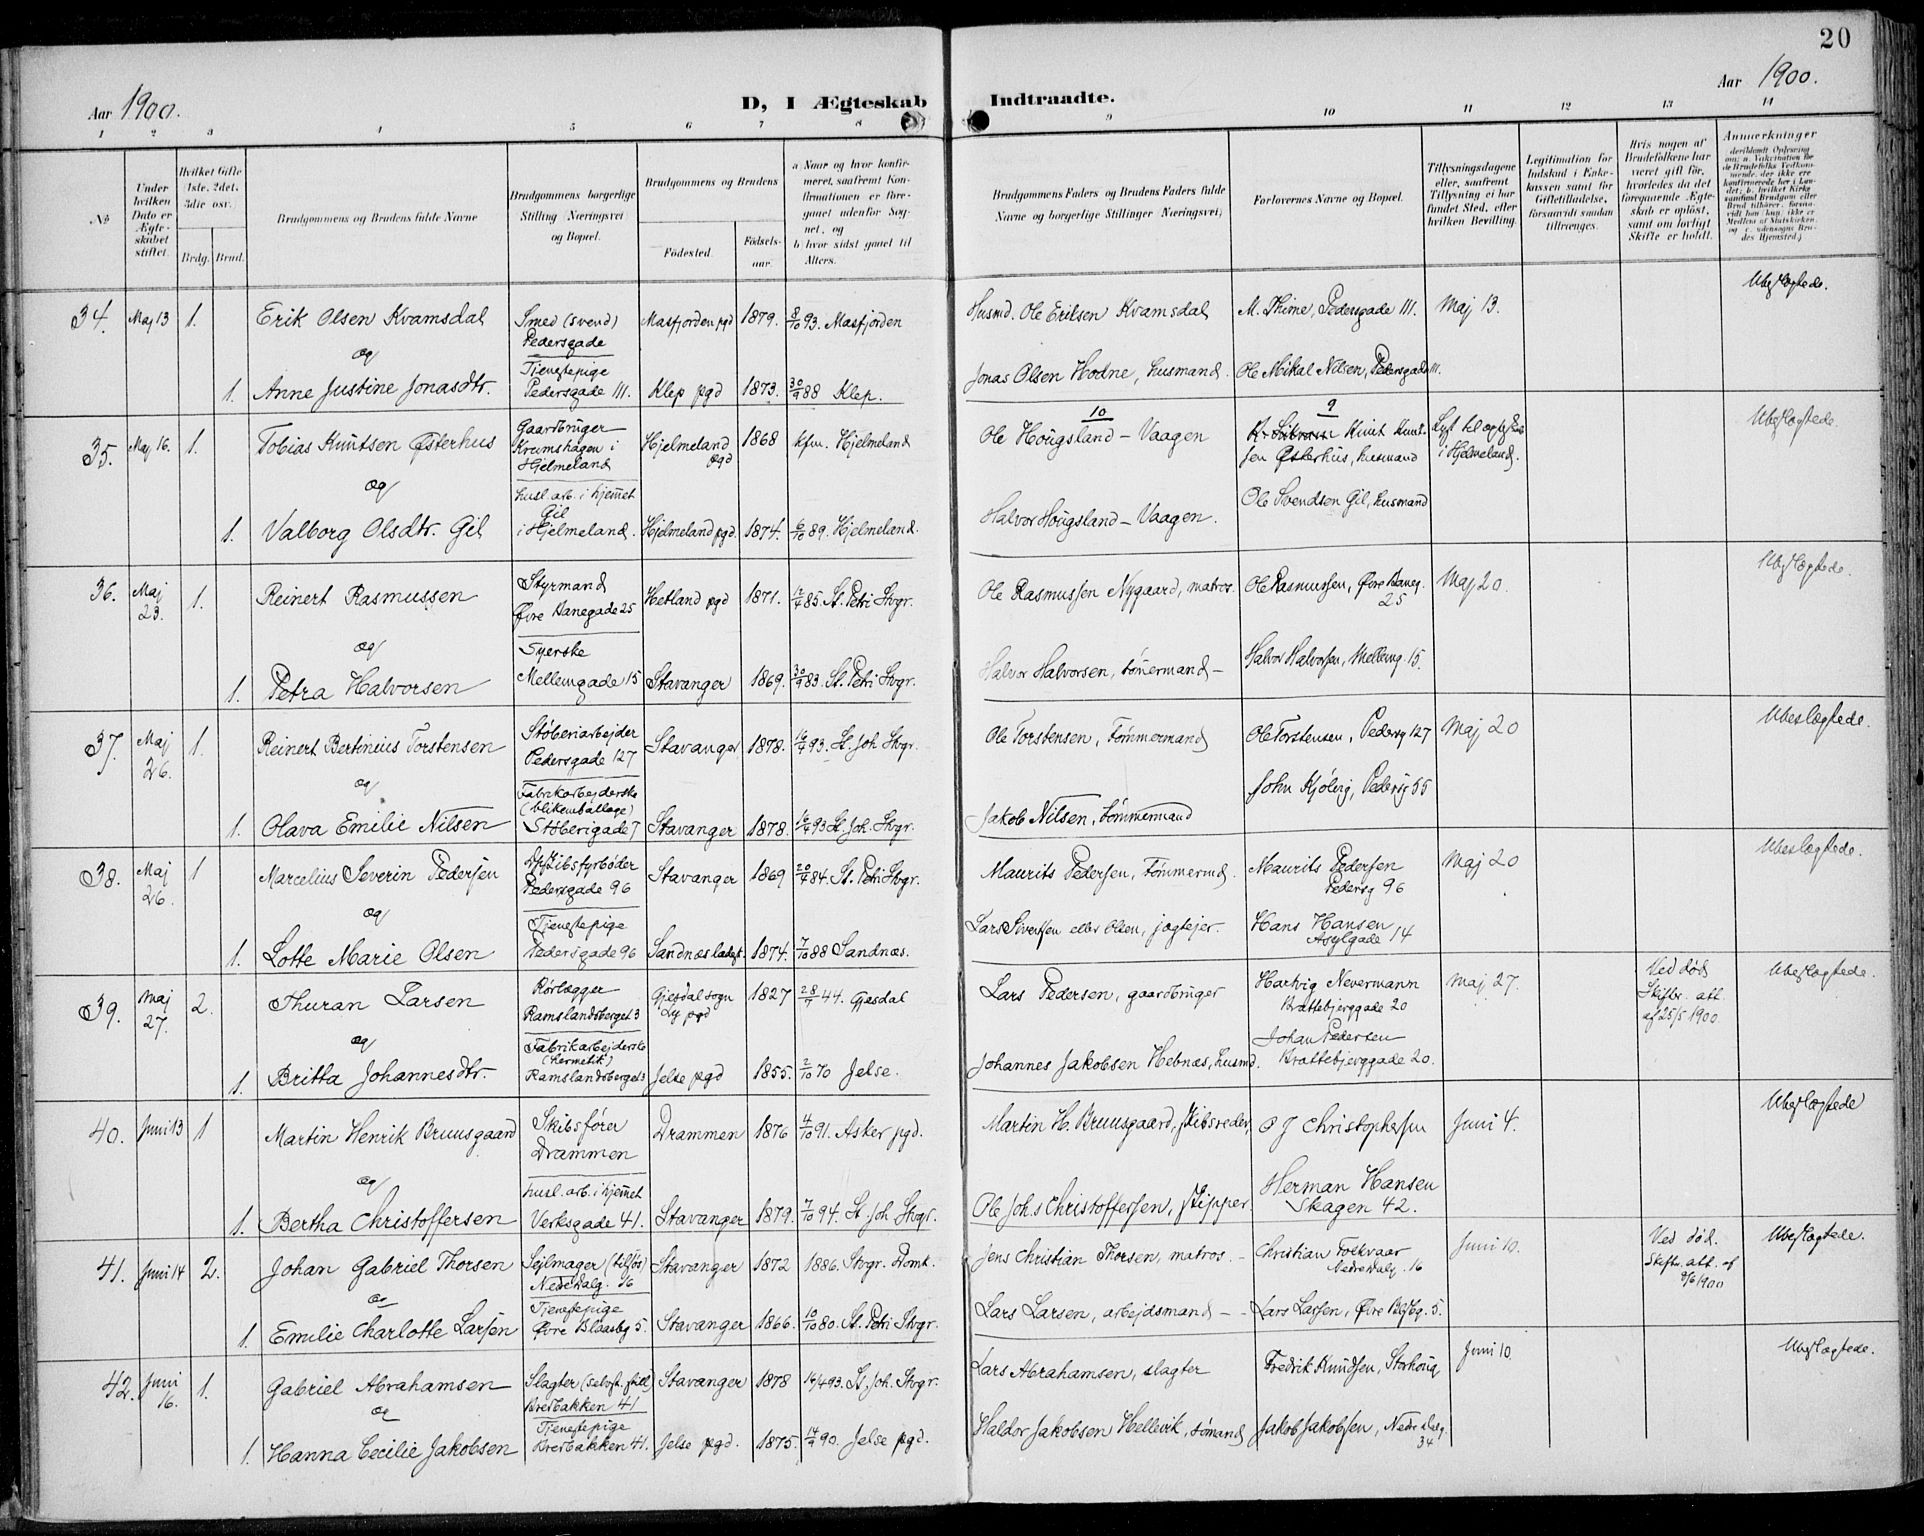 20
Aar 1900.
D, I Ægteskab Indtraadte.
Aar 1900.
1 2 3 4 5 6 7 8 9 10 11 12 13 14
No
Under hvilken Dato er Ægteskabet stiftet.
Hvilket Gifte 1ste. 2det. 3die osv.
Brdg. Brud.
Brudgommens og Brudens fulde Navne
Brudgommens borgerlige Stilling Næringsvei og Bopæl.
Brudgommens og Brudens
Fødested.
Fødselsaar.
a Naar og hvor konfirmeret, saafremt Konfirmationen er foregaaet udenfor Sognet, og
b hvor sidst gaaet til Alters.
Brudgommens Faders og Brudens Faders fulde Navne og borgerlige Stillinger Næringsvei;
Forlovernes Navne og Bopæl.
Tillysningsdagene eller, saafremt Tillysning ei har fundet Sted, efter hvilken Bevilling.
Legitimation for Indskud i Enkekassen samt for Giftetilladelse, forsaavidt saadan tiltrænges.
Hvis nogen af Brudefolkene har været gift før, hvorledes da det foregaaende Ægteskab er opløst, samt om lovligt Skifte er holdt.
Anmærkninger
34. Maj 13 1. Erik Olsen Kvamsdal Smed (svend) Pedersgade Masfjorden pgd 1879. 8/10 93. Masfjorden Husmd. Ole Eriksen Kvamsdal M. Thime, Pedersgade 111. Maj 13. Ubeslægtede.
og
1. Anne Justine Jonasdtr. Tjenestepige Pedersgade 111. Klep pgd 1873. 30/9 88 Klep. Jonas Olsen Hodne, husmand. Ole Mikal Nilsen, Pedersgade 111.
35. Maj 16. 1. Tobias Knutsen Østerhus Gaardbruger Krumshagen i Hjelmeland Hjelmeland pgd 1868 kfm. Hjelmeland 10 Ole Hougsland - Vaagen 9 Knut Knutsen Østerhus, husmand Lyst til ægtesk. i Hjelmeland. Ubeslægtede.
og
1. Valborg Olsdtr. Gil husl. arb. i hjemmet Gil i Hjelmeland. Hjelmeland pgd. 1874. 6/10 89. Hjelmeland. Halvor Hougsland - Vaagen. Ole Svendsen Gil, husmand
36. Maj 23. 1. Reinert Rasmussen Styrmand Øvre Banegade 25 Hetland pgd 1871. 12/4 85. St. Petri Stvgr. Ole Rasmussen Nygaard, matros. Ole Rasmussen, Øvre Baneg. 25 Maj 20. Ubeslægtede.
og
1. Petra Halvorsen Syerske Mellemgade 15 Stavanger 1869. 30/9 83. St. Petri Stvgr. Halvor Halvorsen, tømermand - Halvor Halvorsen, Mellemg. 15.
37. Maj 26. 1. Reinert Bertinius Torstensen Støberiarbejder Pedersgade 127 Stavanger 1878. 16/4 93. St. Joh Stvgr. Ole Torstensen, Tømmermand Ole Torstensen, Pedersg 127 Maj 20 Ubeslægtede.
og
1. Olava Emilie Nilsen Fabrikarbejderske (blikemballage) Støberigade 7 Stavanger 1878. 16/4 93 St. Joh. Stvgr. Jakob Nilsen, tømmermand John Kjølvig, Pedersg 55
38. Maj 26. 1 Marcelius Severin Pedersen Dpskibsfyrbøder Pedersgade 96 Stavanger 1869 20/4 84. St. Petri Stvgr. Maurits Pedersen, tømmermd. Maurits Pedersen Pedersg 96 Maj 20 Ubeslægtede.
og
1. Lotte Marie Olsen Tjenestepige Pedersgade 96 Sandnes ladest. 1874. 7/10 88 Sandnæs. Lars Sivertsen eller Olsen, jægtejer. Hans Hansen Asylgade 14
39. Maj 27. 2. Thuran Larsen Rørlægger Ramslandsberget 3 Gjesdal sogn Ly pgd 1827 28/9 44. Gjesdal Lars Pedersen, gaardbruger Hartvig Nevermann Brattebjerggade 20 Maj 27. Ved død Skiftr. att. af 25/5 1900. Ubeslægtede.
og
1. Britta Johannesdtr. Fabrikarbejderske (hermetik) Ramslandsberget 3 Jelse pgd 1855. 2/10 70 Jelse. Johannes Jakobsen Hebnæs, husmd. Johan Pedersen Brattebjerggade 20.
40. Juni 13 1 Martin Henrik Bruusgaard Skibsfører Drammen Drammen 1876 4/10 91. Asker pgd. Martin H. Bruusgaard, skibsreder, O J Christophersen Juni 4. Ubeslægtede
og
1. Bertha Christoffersen husl. arb. i hjemmet Verksgade 41. Stavanger 1879. 7/10 94. St. Joh Stvgr. Ole Johs Christoffersen, skipper. Herman Hansen Skagen 42.
41. Juni 14 2. Johan Gabriel Thorsen Sejlmager (tilsjøs) Nedre Dalg. 16 Stavanger 1872 1886. Stvgr. Domk. Jens Christian Thorsen, matros. - Christian Folkvaar Nedre Dalg. 16 Juni 10. Ved død. Skiftr. att. af 9/6 1900 Ubeslægtede.
og
1. Emilie Charlotte Larsen Tjenestepige Øvre Blaasbg 5. Stavanger 1866. 10/10 80. St. Petri Stvgr. Lars Larsen, arbejdsmand - - Lars Larsen, Øvre Blsbg. 5.
42. Juni 16. 1. Gabriel Abrahamsen Slagter (selvst. still) Brebakken 41 Stavanger 1878 16/4 93. St. Joh. Stvgr. Lars Abrahamsen, slagter Fredrik Knudsen, Storhoug Juni 10. Ubeslægtede.
og
1. Hanna Cecilie Jakobsen Tjenestepige Brebakken 41. Jelse pgd. 1875. 14/9 90. Jelse pgd. Haldor Jakobsen Hellevik, sømand Jakob Jakobsen, Nedre Dalg. 34